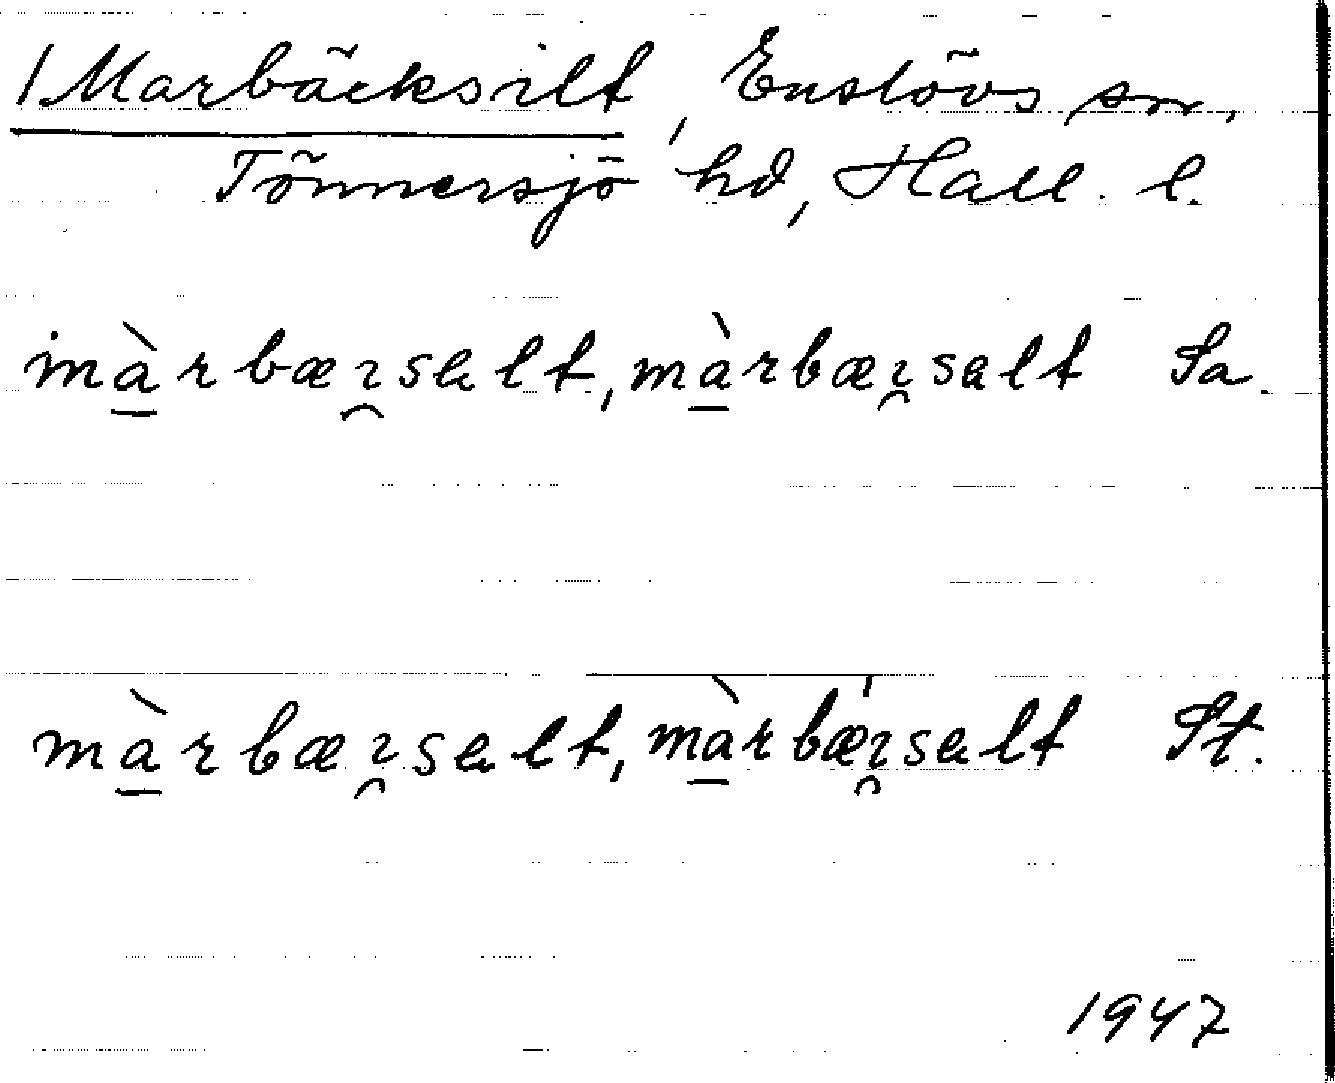 /Marbäcksilt, Enslövs sn,
Tönnersjö hd, Hall. l.
màrbæɿ̯salt, màrbæɿ̯salt Sa.
màrbæɿ̯salt, màrbǽɿ̯salt St.
1947